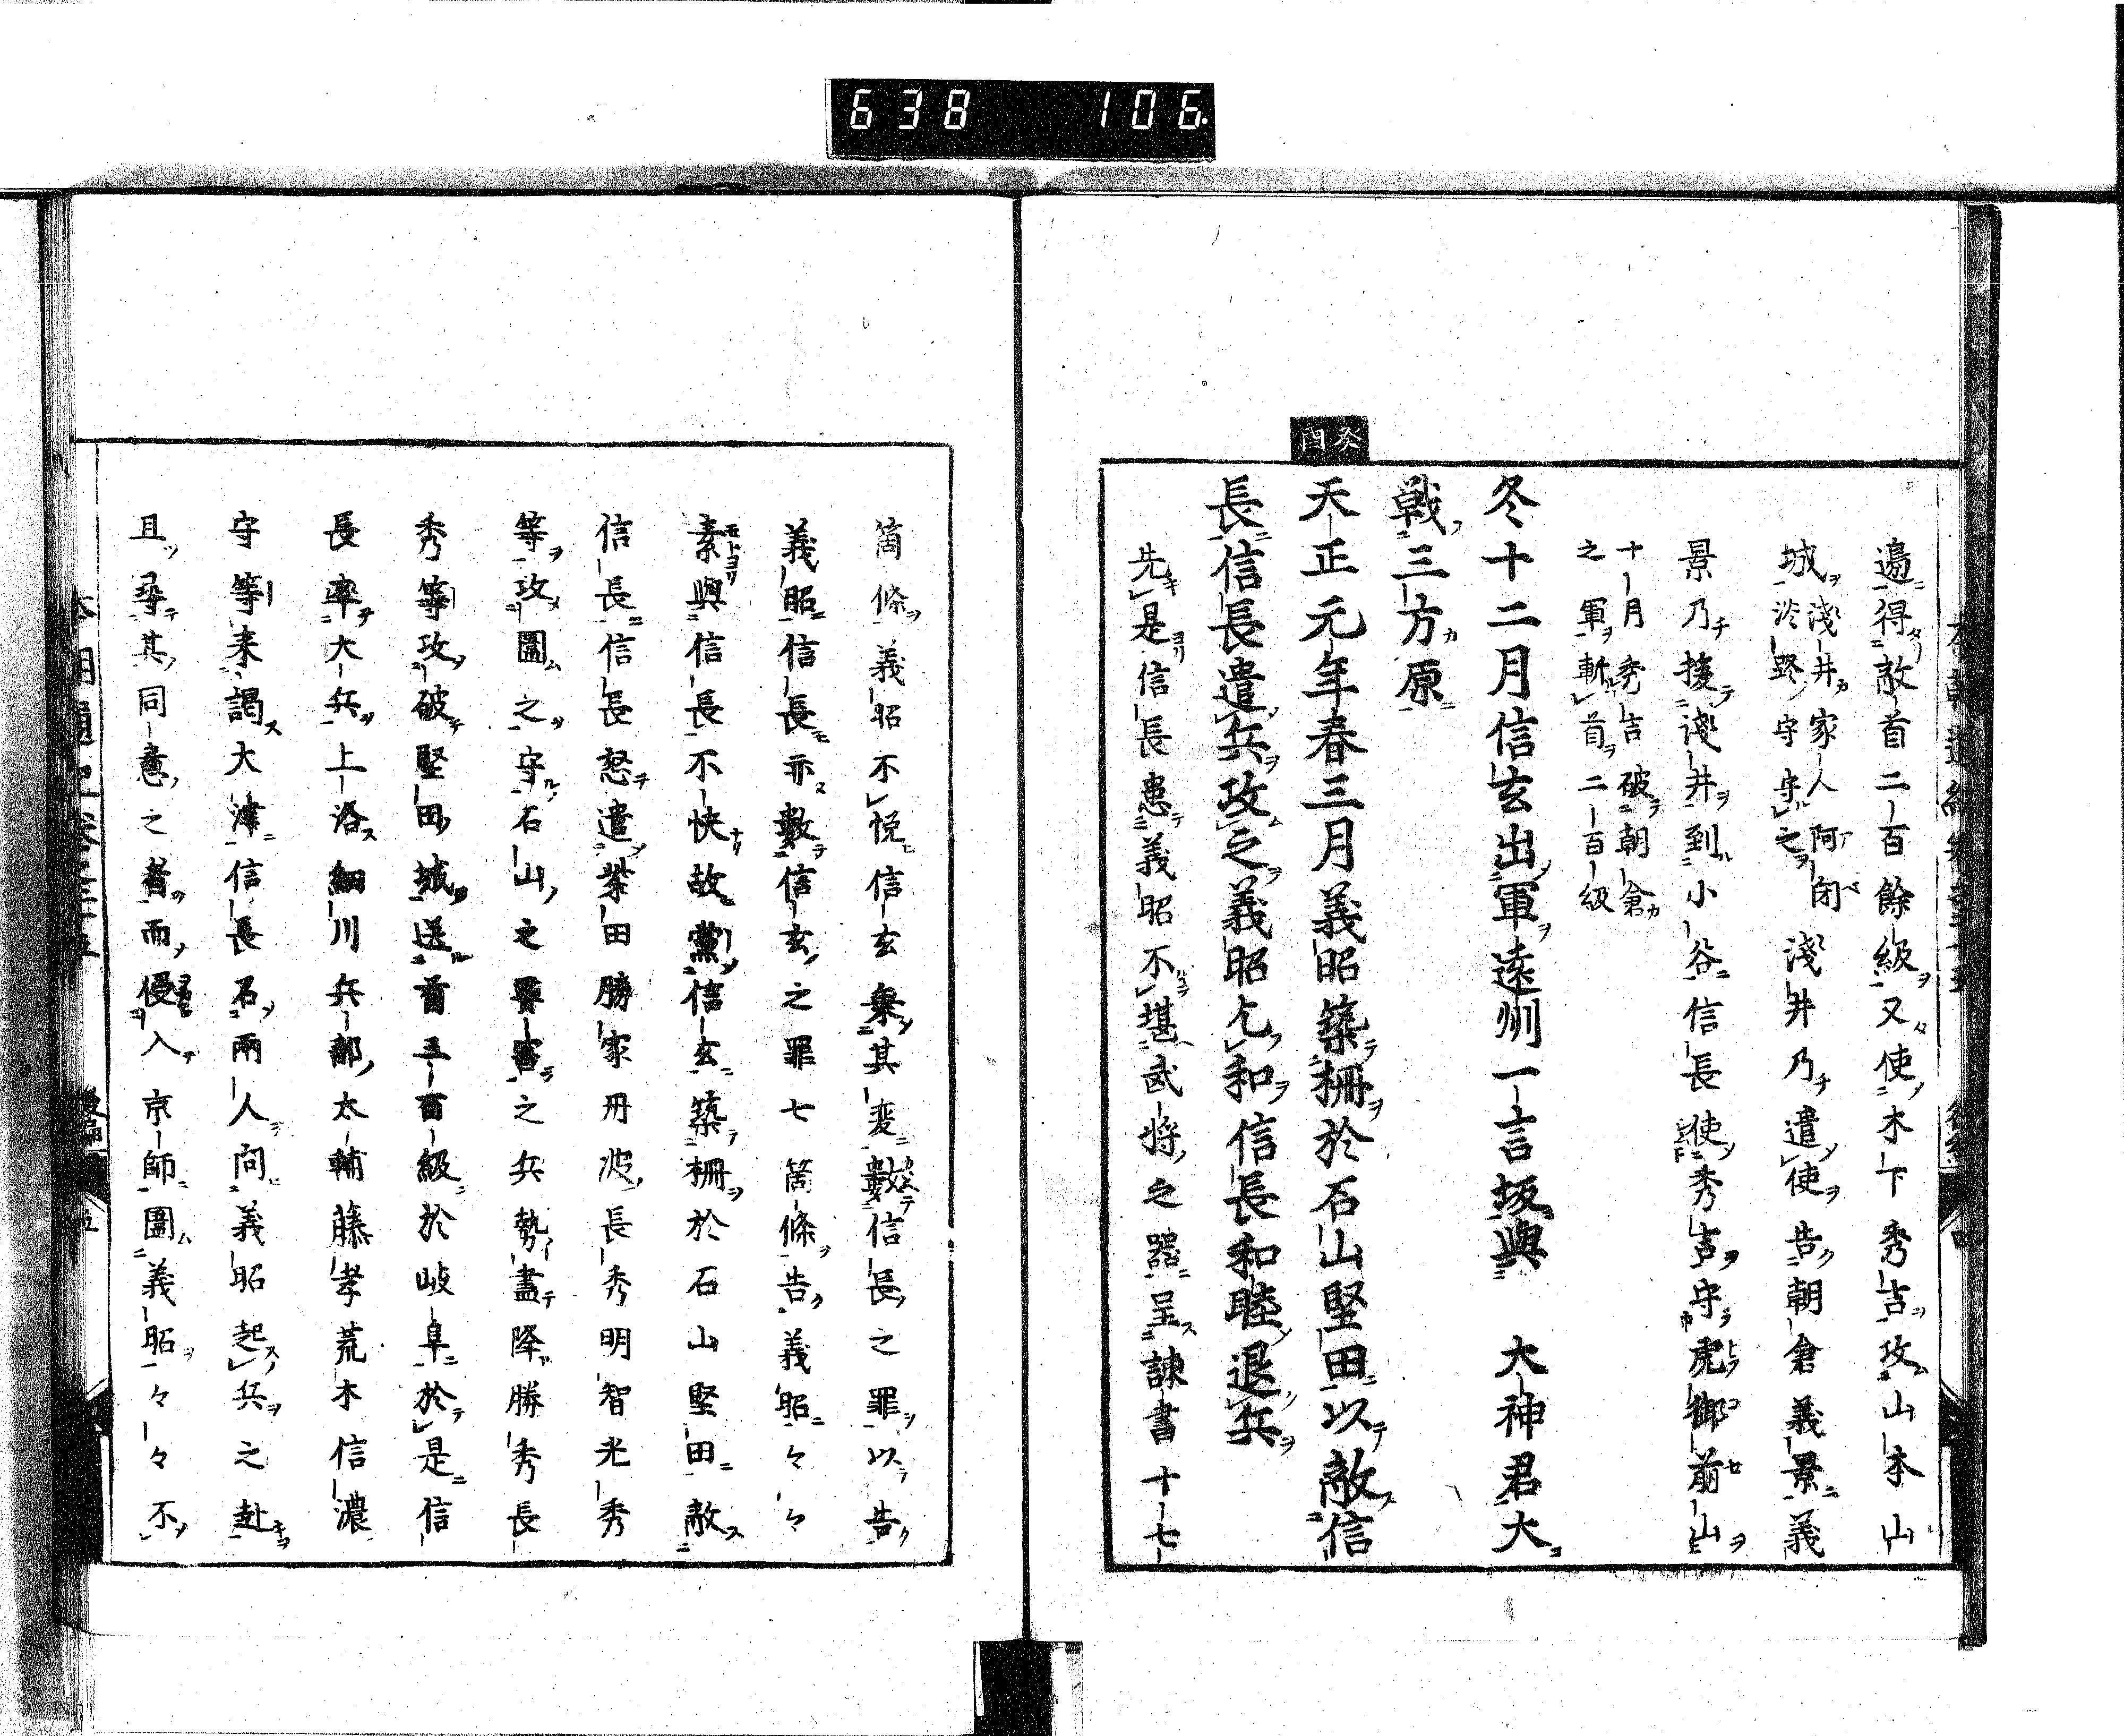 638 106.
邉得敵首二百餘級又使木下秀吉攻山本山
城淺井家人阿閉淡路守守之淺井乃遣使告朝倉義景義
景乃援淺井到小谷信長使秀吉守虎御前山
十月秀吉破朝倉
之軍斬首二百級
冬十二月信玄出軍遠州一言坂與 大神君大
戰三方原
癸酉
天正元年春三月義昭築柵於石山堅田以敵信
長信長遣兵攻之義昭乞和信長和睦退兵
先是信長患義昭不堪武将之器呈諫書十七
箇條義昭不悦信玄乗其変數信長之罪以告
義昭信長亦數信玄之罪七箇條告義昭々々
素與信長不快故黨信玄築柵於石山堅田敵
信長信長怒遣柴田勝家丹波長秀明智光秀
等攻圍之守石山之要害之兵勢盡降勝秀長
秀等攻破堅田城送首五百級於岐阜於是信
長率大兵上洛細川兵部太輔藤孝荒木信濃
守等来謁大津信長召兩人問義昭起兵之赴
且尋其同意之者而侵入京師圍義昭々々不